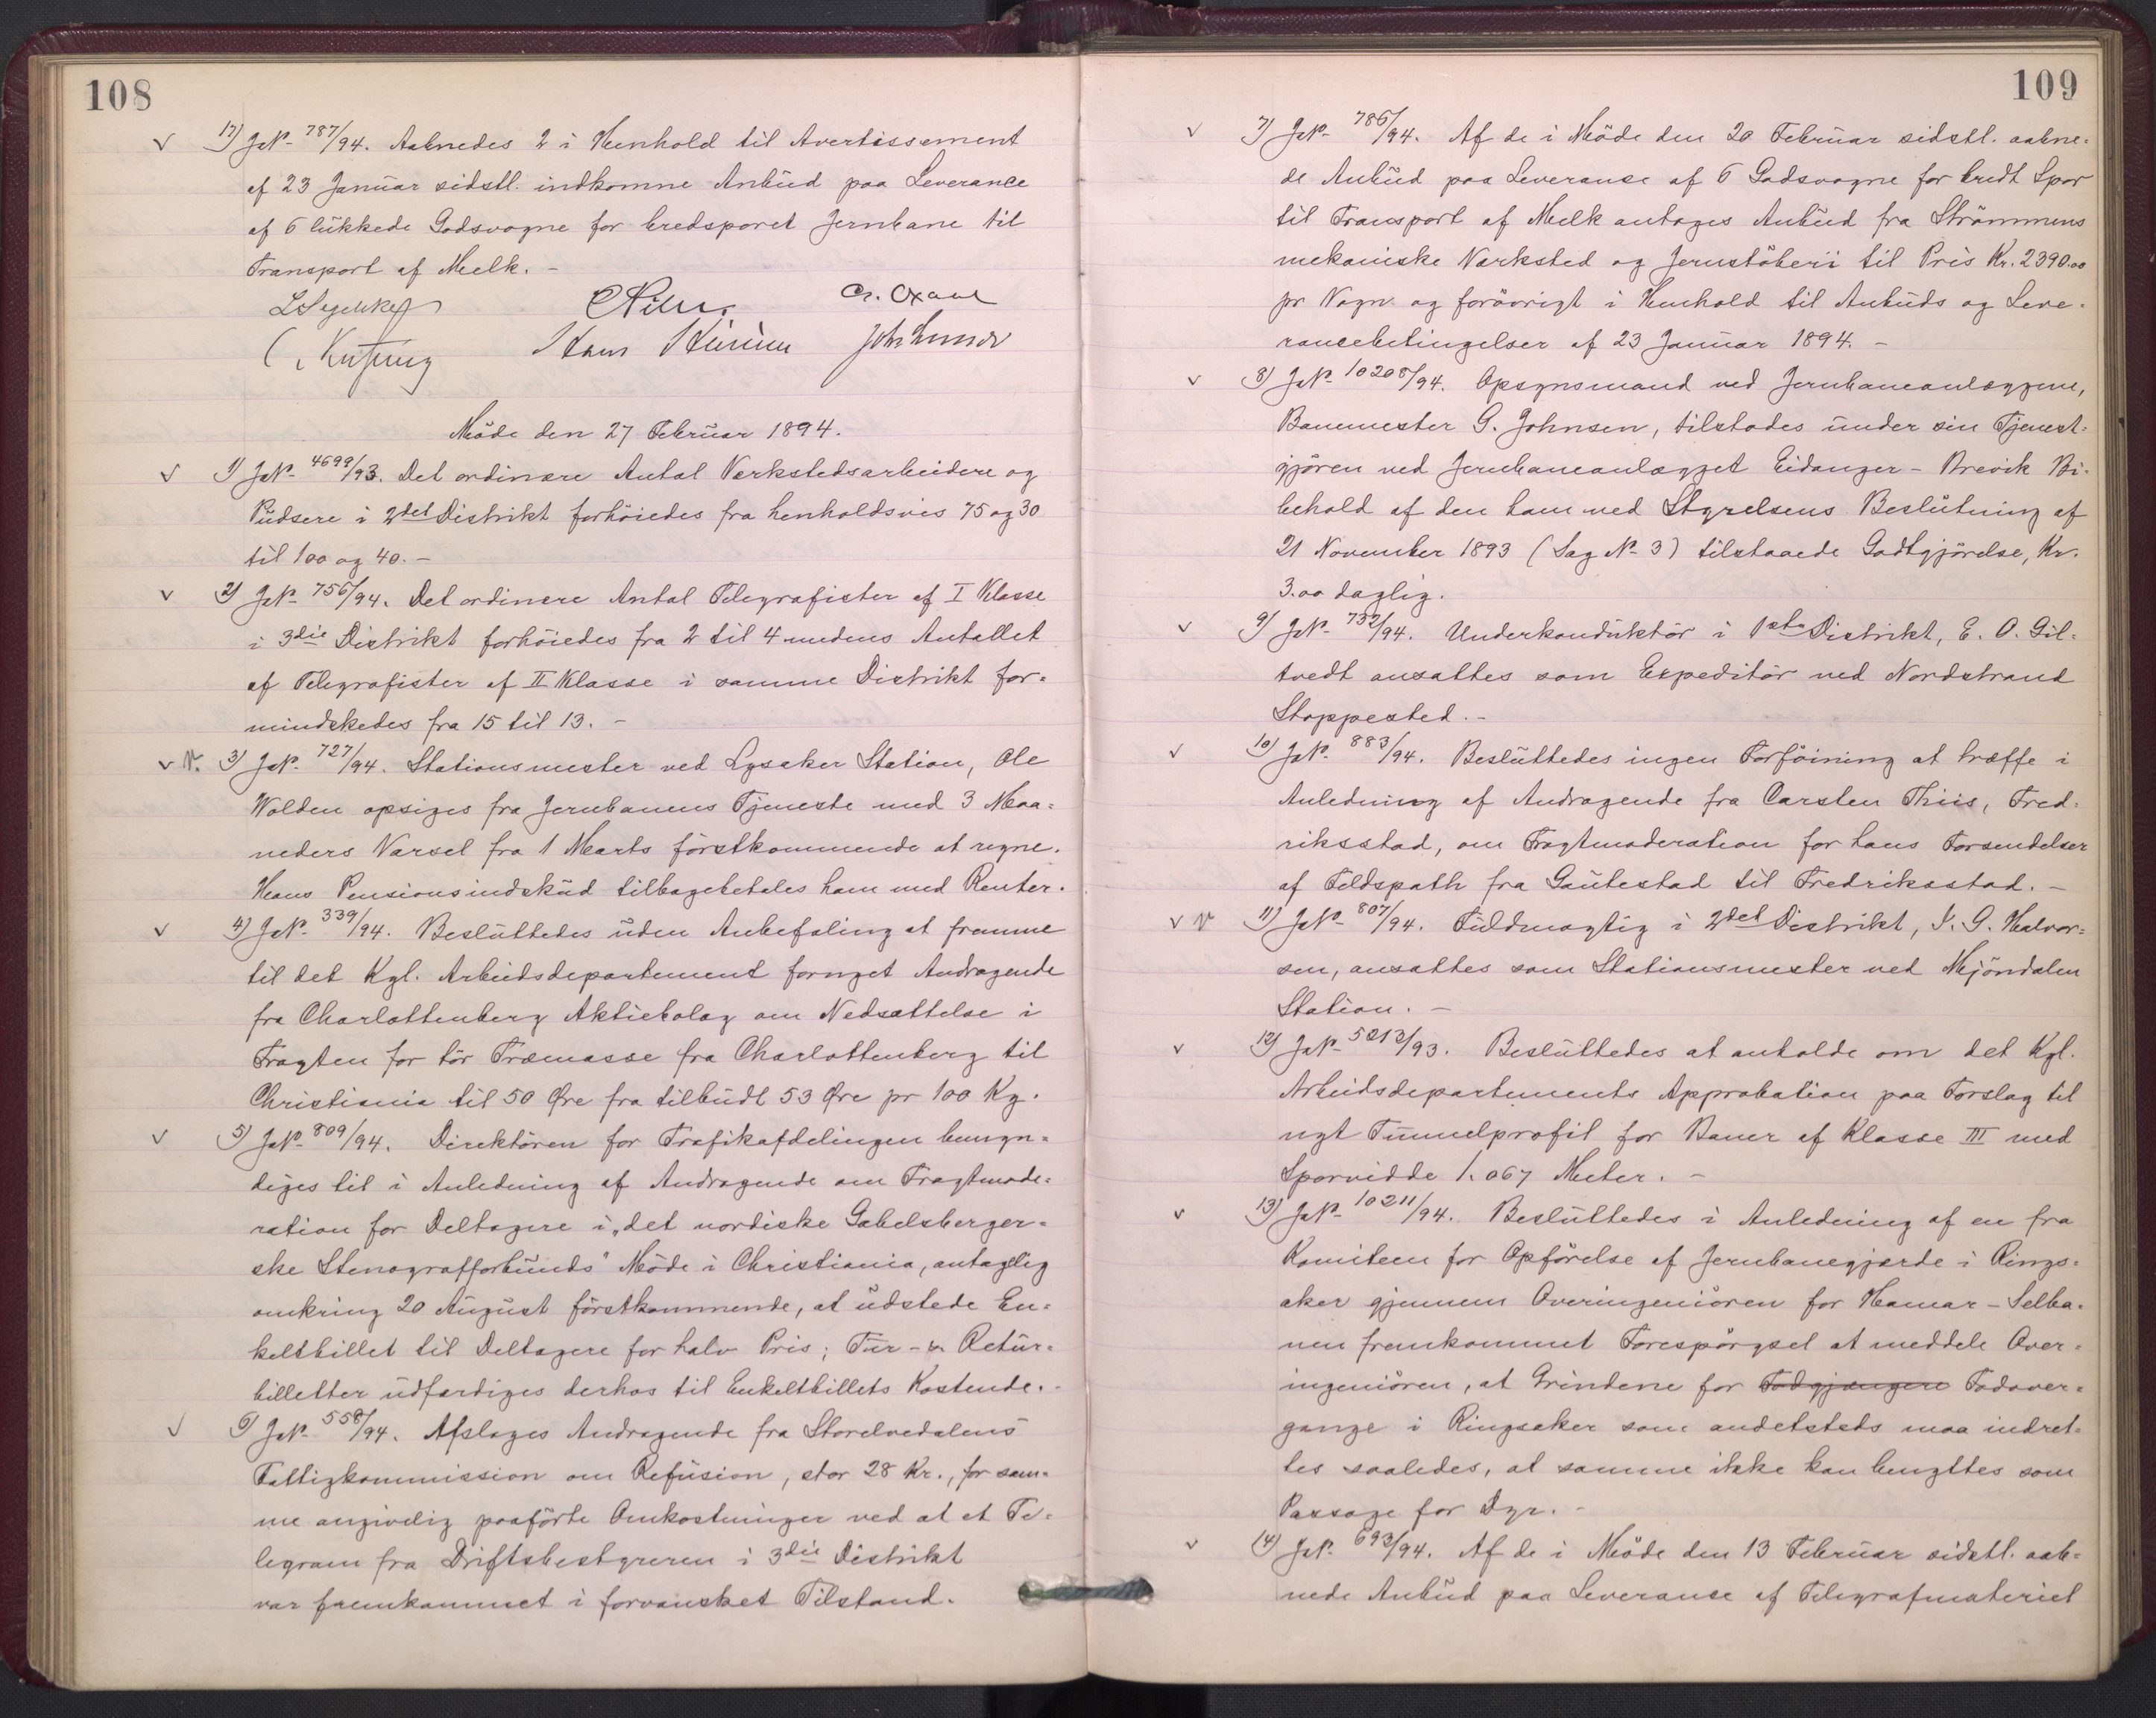 108
17) JN- 787/94. Aabnedes 2 i Henhold til Avertissement
af 23 Januar sidstl. indkomne Anbud paa Leverance
af 6 lukkede Godsvogne for bredsporet Jernbane til
Transport af Melk. -
Möde den 27 Februar 1894.
1) JN- 4699/93. Det ordinære Antal Verkstedsarbeidere og
Pudsere i 2det Distrikt forhöiedes fra henholdsvis 75 og 30
til 100 og 40. -
2) JN- 756/94. Det ordinære Antal Telegrafister af I Klasse
i 3die Distrikt forhöiedes fra 2 til 4 medens Antallet
af Telegrafister af II Klasse i samme Distrikt for=
mindskedes fra 15 til 13. -
3) JN- 727/94. Stationsmester ved Lysaker Station, Ole
Wolden opsiges fra Jernbanens Tjeneste med 3 Maa=
neders Varsel fra 1 Marts förstkommende at regne.
Hans Pensionsindskud tilbagebetales ham med Renter.
4) JN- 339/94. Besluttedes uden Anbefaling at fremme
til det Kgl. Arbeidsdepartement fornyet Andragende
fra Charlottenberg Aktiebolag om Nedsættelse i
Fragten for tör Træmasse fra Charlottenberg til
Christiania til 50 Øre fra tilbudt 53 Øre pr 100 Kg.
5) JN- 809/94. Direktören for Trafikafdelingen bemyn=
diges til i Anledning af Andragende om Fragtmode=
ration for Deltagere i „det nordiske Gabelsberger=
ske Stenografforbunds" Möde i Christiania, antagelig
omkring 20 August förstkommende, at udstede En=
keltbillet til Deltagere for halv Pris; Tur- & Retur=
billetter udfærdiges derhos til Enkeltbillets Kostende. -
6) JN- 558/94. Afslages Andragende fra Storelvedalens
Fattigkommission om Refusion, stor 28 Kr., for sam=
me angivelig paaförte Omkostninger ved at et Te=
legram fra Driftsbestyreren i 3die Distrikt
var fremkommet i forvansket Tilstand.
109
7) JN- 786/94. Af de i Möde den 20 Februar sidstl. aabne=
de Anbud paa Leveranse af 6 Godsvogne for bredt Spor
til Transport af Melk antages Anbud fra Strömmens
mekaniske Værksted og Jernstöberi til Pris Kr. 2390.00
pr Vogn og forövrigt i Henhold til Anbuds og Leve=
rancebetingelser af 23 Januar 1894. -
8) JN- 10208/94. Opsynsmand ved Jernbaneanlæggene,
Banemester G. Johnsen, tilstodes under sin Tjenest=
gjören ved Jernbaneanlægget Eidanger - Brevik Bi=
behold af den ham ved Styrelsens Beslutning af
21 November 1893 (Sag N- 3) tilstaaede Godtgjörelse, Kr.
3.00 daglig.
9) JN- 732/94. Underkonduktör i 1ste Distrikt, E. O. Gil=
tvedt ansattes som Expeditör ved Nordstrand
Stoppested. -
10) JN- 883/94. Besluttedes ingen Forföining at træffe i
Anledning af Andragende fra Carsten Thiis, Fred=
riksstad, om Fragtmoderation for hans Forsendelser
af Feldspath fra Gautestad til Fredriksstad. -
11) JN- 807/94. Fuldmægtig i 2det Distrikt, I. G. Halvor=
sen, ansattes som Stationsmester ved Mjöndalen
Station. -
12) JN- 5213/93. Besluttedes at anholde om det Kgl.
Arbeidsdepartements Approbation paa Forslag til
nyt Tunnelprofil for Baner af Klasse III med
Sporvidde 1.067 Meter. -
13) JN- 10211/94. Besluttedes i Anledning af en fra
Komiteen for Opförelse af Jernbanegjærde i Rings=
aker gjennem Overingeniören for Hamar - Selba=
nen fremkommet Forespörgsel at meddele Over=
ingeniören, at Grindene for Fodgjængere Fodover=
gange i Ringsaker som andetsteds maa indret=
tes saaledes, at samme ikke kan benyttes som
Passage for Dyr. -
14) JN- 693/94. Af de i Möde den 13 Februar sidstl. aab=
nede Anbud paa Leveranse af Telegrafmateriel